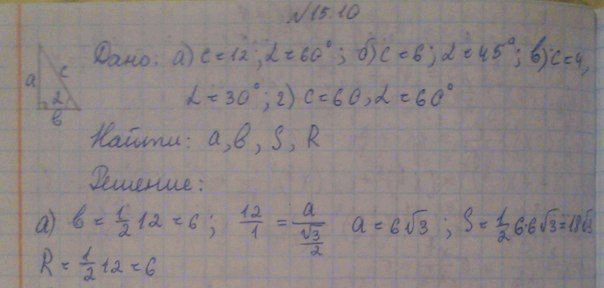 №15.10
Дано: а) c=12; α=60°; б) c=6; α=45°; в) c=4,
α=30°; г) c=60, α=60°
a c α в
Найти: a, в, S, R
Решение:
а) в = 1/2 12 = 6; 12/1 = a/(√3/2) a = 6√3; S = 1/2 6 6√3 = 18√3
R = 1/2 12 = 6